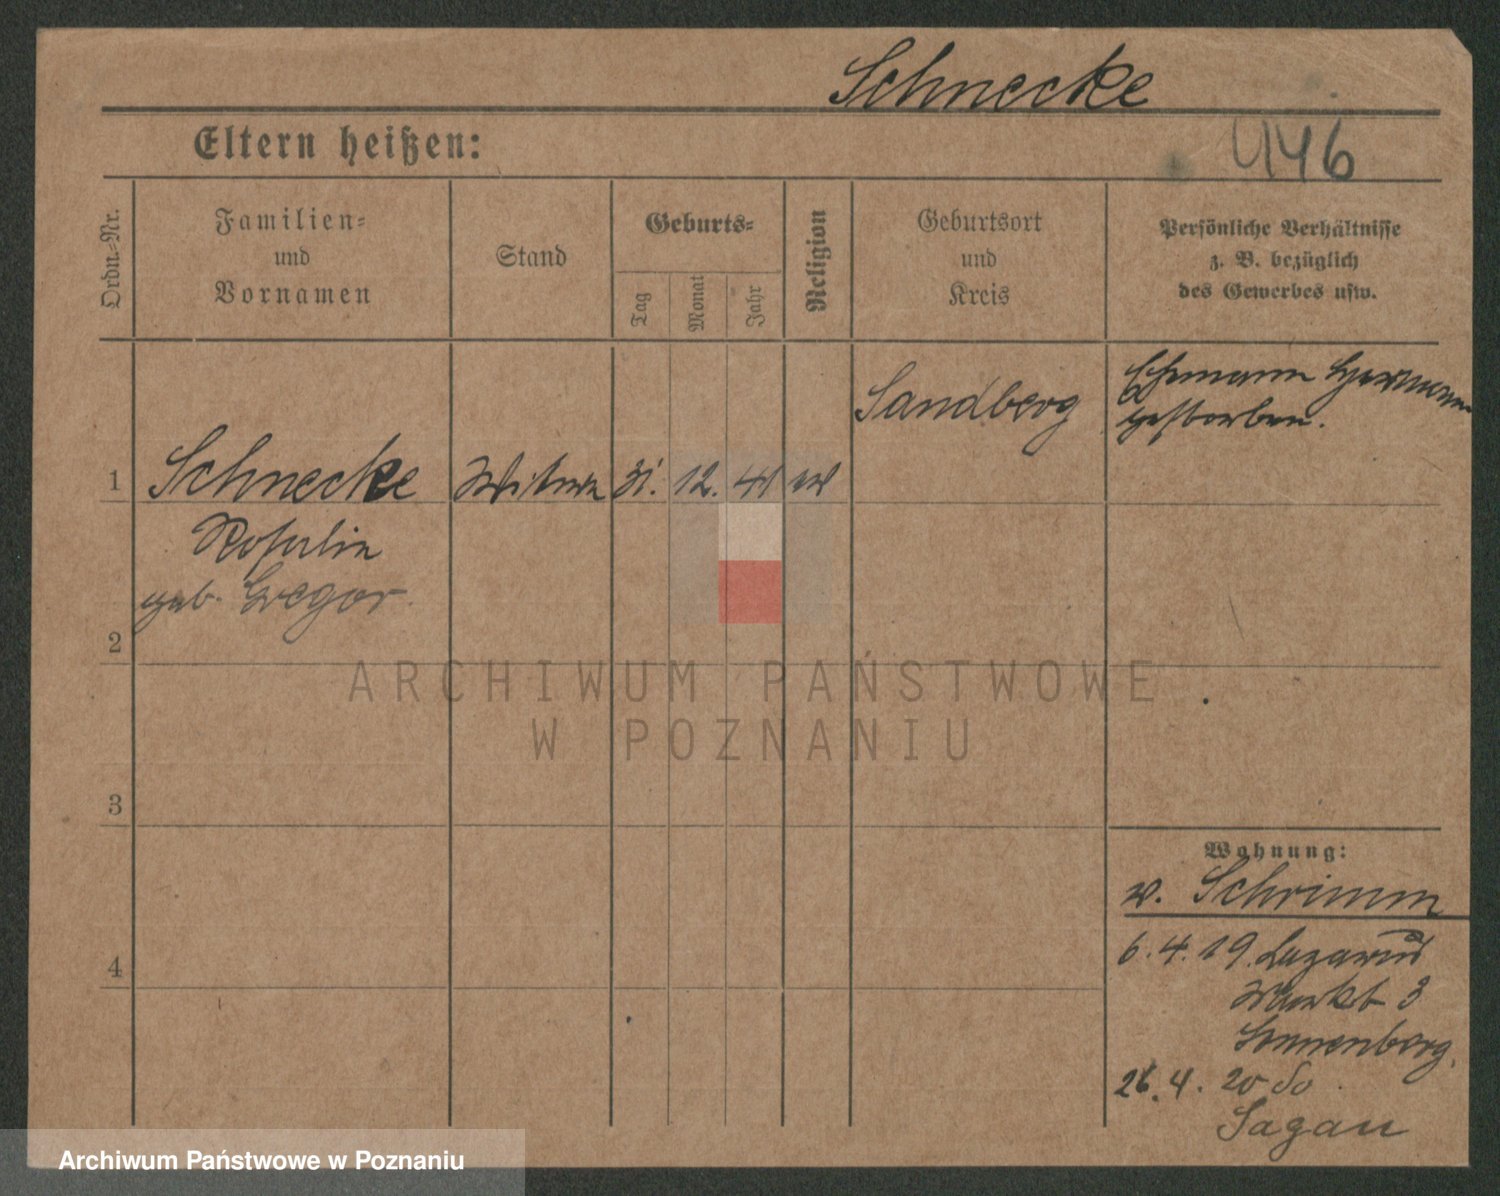 Schnecke
446
Eltern heißen:
Ordn.-Nr.
Familien-
und
Vornamen
Stand
Geburts-
Tag
Monat
Jahr
Religion
Geburtsort
und
Kreis
Persönliche Verhältnisse
z. B. bezüglich
des Gewerbes usw.
1
Schnecke
Witwe
31. 12. 41
Sandberg
Ehemann Hermann
gestorben.
Rosalie
geb. Gregor.
2
3
4
Wohnung:
v. Schrimm
6. 4. 19. Lazarus
Markt 3
Sonnenberg.
26. 4. 20
Sagan
ARCHIWUM PAŃSTWOWE
W POZNANIU
Archiwum Państwowe w Poznaniu